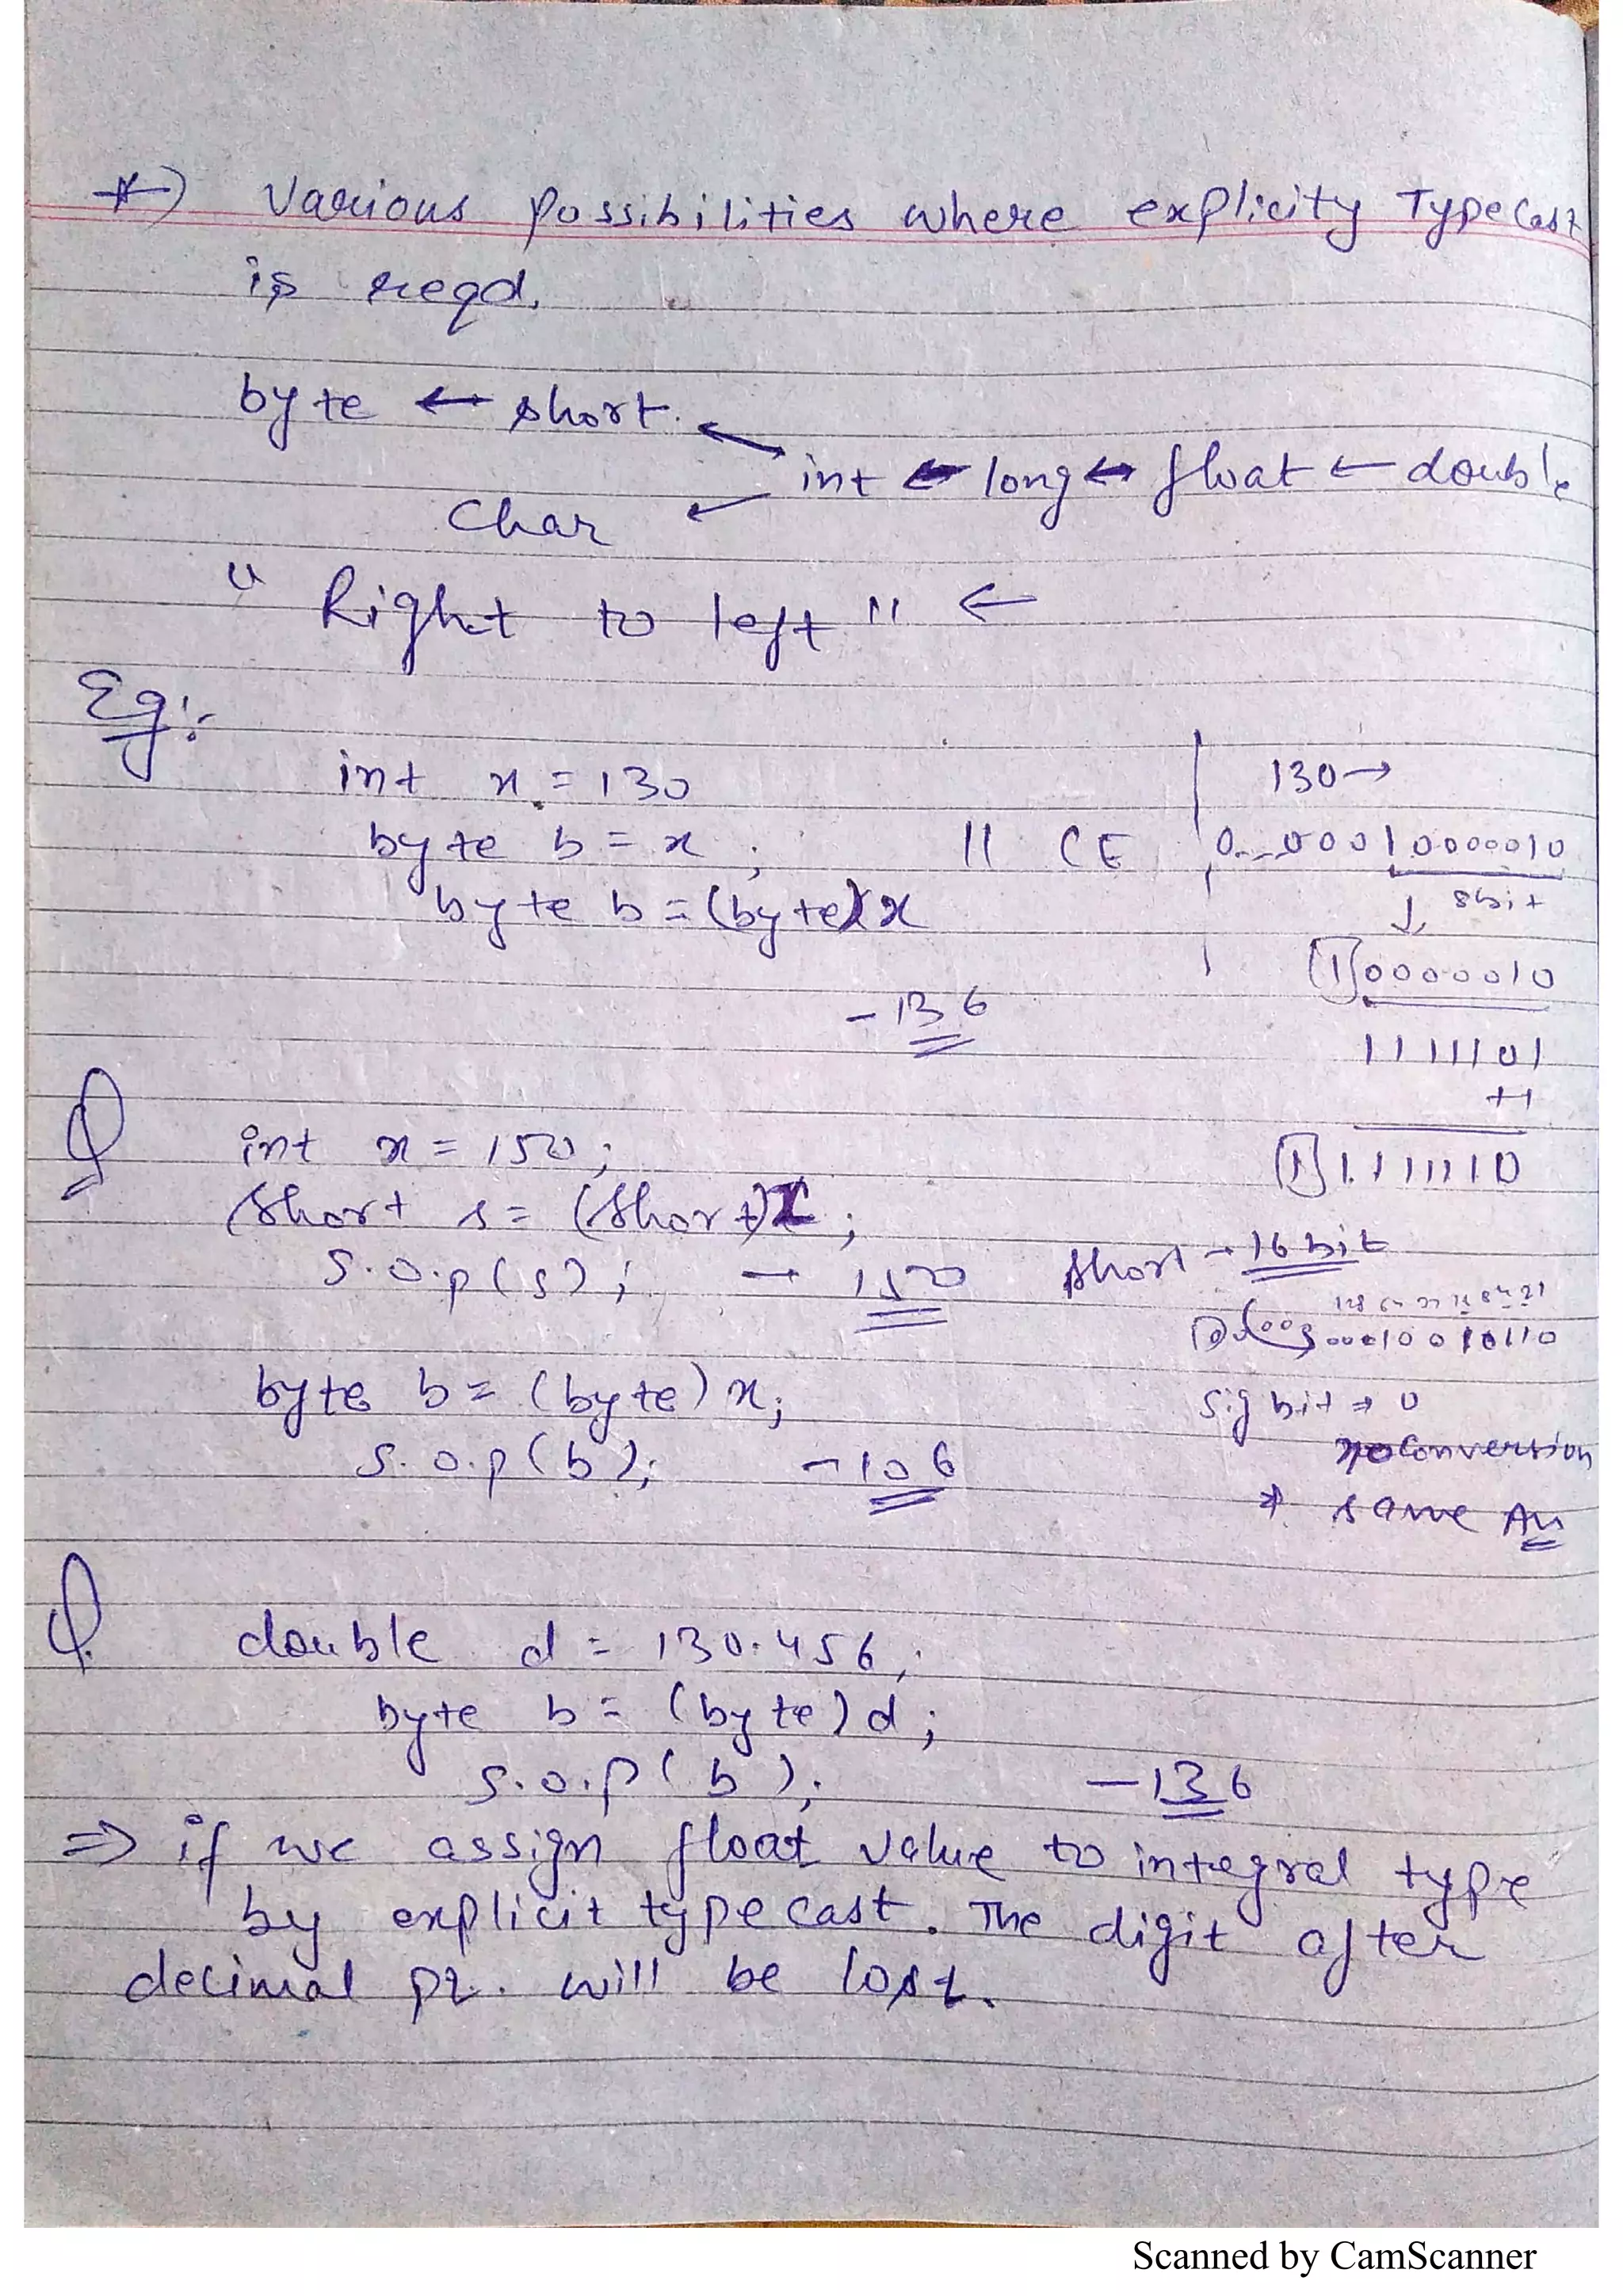 *) Various possibilities where explicity TypeCast
is reqd.
byte ← short ← int ← long ← float ← double
Char ←
" Right to left " ←
Eg:-
int x = 130
byte b = x ; // CE
byte b = (byte)x
-136
130→
0---00010000010
↓ 8bit
[1]0000010
1111101
+1
[1]1111110
Q int x = 150;
short s = (short)x;
S.O.p(s); → 150
short → 16 bit
sig bit → 0
no conversion
→ same An
byte b = (byte) x;
S.O.p(b); -106
Q. double d = 130.456;
byte b = (byte) d;
S.O.P( b ); -136
⇒ if we assign float value to integral type
by explicit type cast. The digit after
decimal pt. will be lost.
Scanned by CamScanner